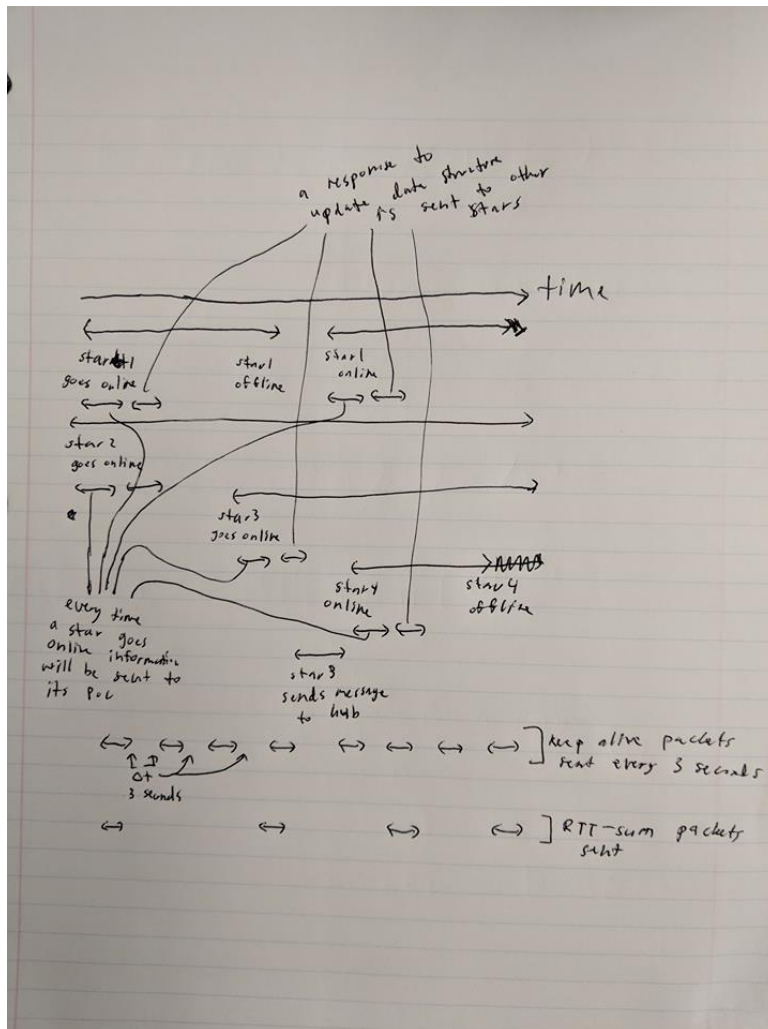 a response to
update data structure
is sent to other
stars
time
star 1
goes online
star1
offline
star1
online
star 2
goes online
star3
goes online
star4
online
star4
offline
every time
a star goes
online information
will be sent to
its PoC
star3
sends message
to hub
keep alive packets
sent every 3 seconds
3 seconds
RTT-sum packets
sent